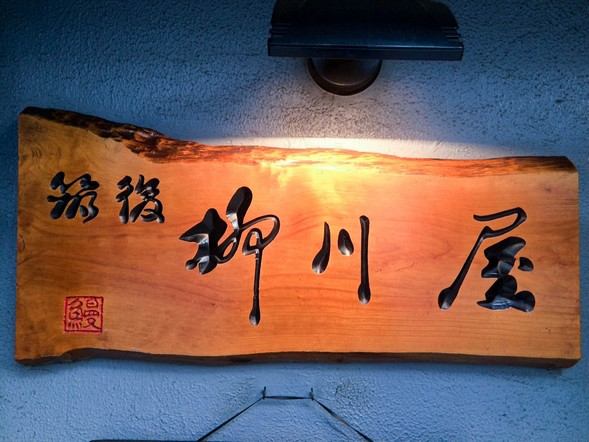 筑後
柳川屋
鰻